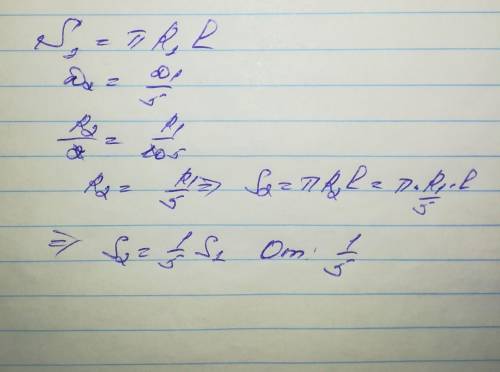 S₁ = π R₁ l
D₂ = D₁/5
R₂/2 = R₁/2·5
R₂ = R₁/5 ⇒ S₂ = π R₂ l = π · R₁/5 · l
⇒ S₂ = 1/5 S₁ От: 1/5